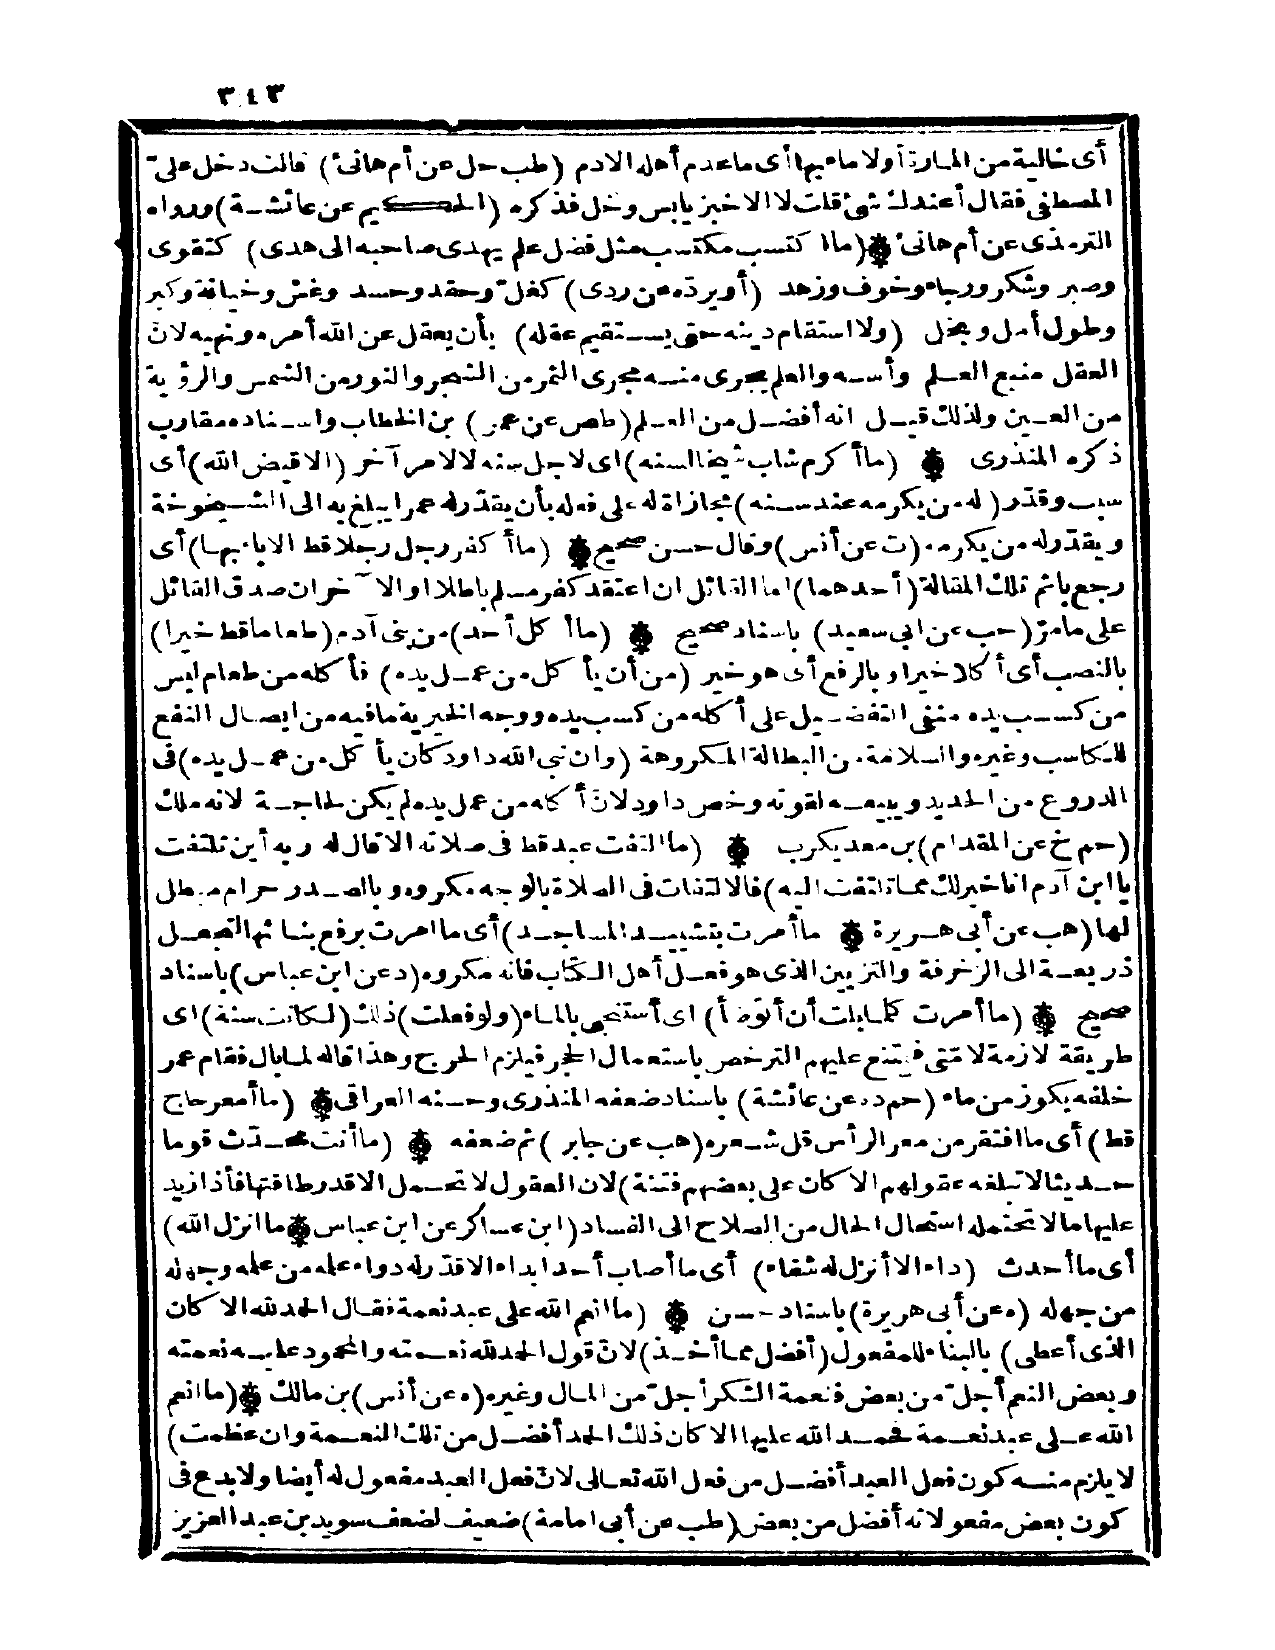 ٣٤٣
أى خالية من المارة أولا ماء بها أى ما عدم أهله الادم (طب حل عن أم هانئ) قالت دخل علىّ
المصطفى فقال أعندك شئ قلت لا الا خبز يابس وخل فذكره (الحكيم عن عائشة) ورواه
الترمذى عن أم هانئ ۞ (ما اكتسب مكتسب مثل فضل علم يهدى صاحبه الى هدى) كتقوى
وصبر وشكر ورجاء وخوف وزهد (أو يردّه عن ردى) كغل وحقد وحسد وغش وخيانة وكبر
وطول أمل وبخل (ولا استقام دينه حتى يستقيم عقله) بأن يعقل عن الله أمره ونهيه لان
العقل منبع العلم وأسه والعلم يجرى منه مجرى الثمر من الشجر والنور من الشمس والرؤية
من العين ولذلك قيل انه أفضل من العلم (طص عن عمر) بن الخطاب واسناده مقارب
ذكره المنذرى ۞ (ما أكرم شاب شيخا لسنه) اى لاجل سنه لا لامر آخر (الا قيض الله) أى
سبب وقدّر (له من يكرمه عند سنه) مجازاة له على فعله بأن يقدّر له عمرا يبلغ به الى الشيخوخة
ويقدّر له من يكرمه (ت عن أنس) وقال حسن صحيح ۞ (ما أكفر رجل رجلا قط الا باء بها) أى
رجع باثم تلك المقالة (أحدهما) اما القائل ان اعتقد كفر مسلم باطلا او الآخر ان صدق القائل
على ما مرّ (حب عن ابى سعيد) باسناد صحيح ۞ (ما أكل أحد) من بنى آدم (طعاما قط خيرا)
بالنصب أى أكلا خيرا وبالرفع أى هو خير (من أن يأكل من عمل يده) فأكله من طعام ليس
من كسب يده منفى التفضيل على أكله من كسب يده ووجه الخيرية ما فيه من ايصال النفع
للكاسب وغيره والسلامة من البطالة المكروهة (وان نبى الله داود كان يأكل من عمل يده) فى
الدروع من الحديد ويبيعه لقوته وخص داود لان أكله من عمل يده لم يكن لحاجة لانه ملك
(حم خ عن المقدام) بن معد يكرب ۞ (ما التفت عبد قط فى صلاته الا قال له ربه أين تلتفت
يا ابن آدم انا خير لك مما تلتفت اليه) فالالتفات فى الصلاة بالوجه مكروه وبالصدر حرام مبطل
لها (هب عن أبى هريرة) ۞ ما أمرت بتشييد المساجد) أى ما امرت برفع بنائها لتجعل
ذريعة الى الزخرفة والتزيين الذى هو فعل أهل الكتاب فانه مكروه (د عن ابن عباس) باسناد
صحيح ۞ (ما أمرت كلما بلت أن أتوضأ) اى أستنجى بالماء (ولو فعلت) ذلك (لكانت سنة) اى
طريقة لازمة لامّتى فيمتنع عليهم الترخص باستعمال الحجر فيلزم الحرج وهذا قاله لما بال فقام عمر
خلفه بكوز من ماء (حم د ه عن عائشة) باسناد ضعفه المنذرى وحسنه العراقى ۞ (ما أمعر حاج
قط) أى ما افتقر من معر الرأس قل شعره (هب عن جابر) ثم ضعفه ۞ (ما أنت محدّث قوما
حديثا لا تبلغه عقولهم الا كان على بعضهم فتنة) لان العقول لا تحتمل الا قدر طاقتها فاذا زيد
عليها ما لا تحتمله استحال الحال من الصلاح الى الفساد (ابن عساكر عن ابن عباس ۞ ما انزل الله)
أى ما أحدث (داء الا أنزل له شفاء) أى ما أصاب أحدا بداء الا قدّر له دواء علمه من علمه وجهله
من جهله (ه عن أبى هريرة) باسناد حسن ۞ (ما انعم الله على عبد نعمة فقال الحمد لله الا كان
الذى أعطى) بالبناء للمفعول (أفضل مما أخذ) لان قول الحمد لله نعمته والمحمود عليه نعمته
وبعض النعم أجلّ من بعض فنعمة الشكر أجلّ من المال وغيره (ه عن أنس) بن مالك ۞ (ما انعم
الله على عبد نعمة فحمد الله عليها الا كان ذلك الحمد أفضل من تلك النعمة وان عظمت)
لا يلزم منه كون فعل العبد أفضل من فعل الله تعالى لانّ فعل العبد مفعول له أيضا ولا بدع فى
كون بعض مفعولاته أفضل من بعض (طب عن أبى امامة) ضعيف لضعف سويد بن عبد العزيز